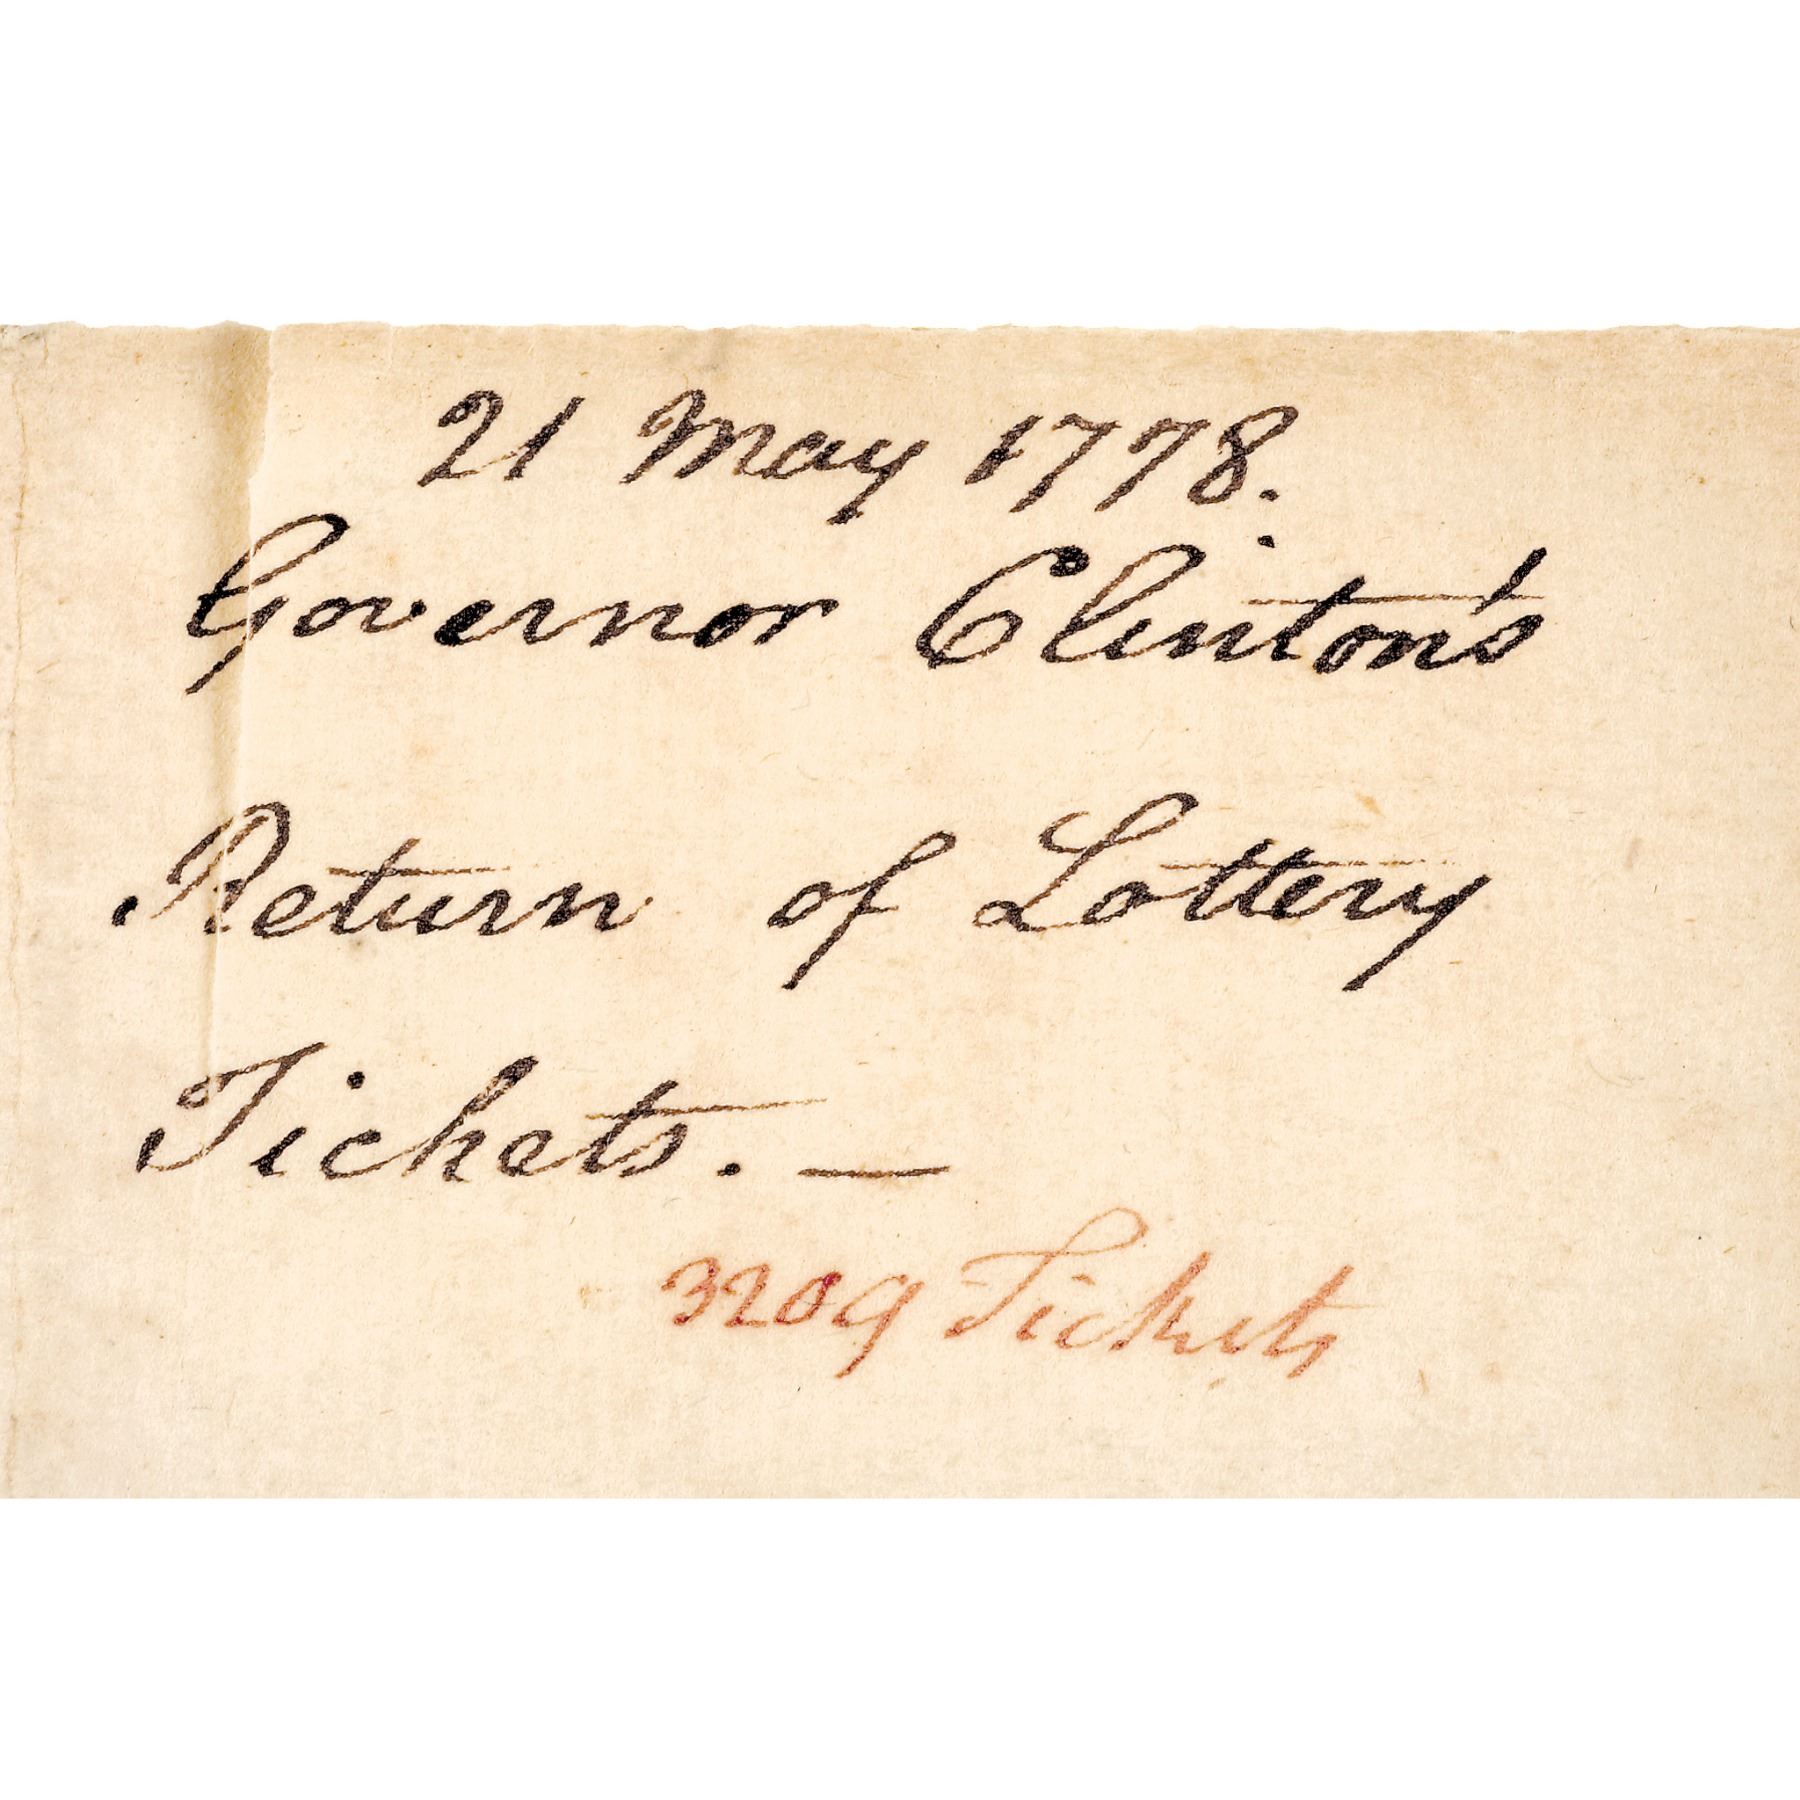 21 May 1778.
Governor Clinton's
Return of Lottery
Tickets. —
3209 Tickets